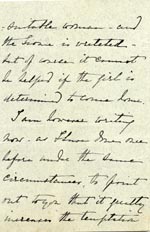 - outable woman - and
the home is
but of course it cannot
be helped if the girl is
determined to come home
I am however writing
now - as I have done once
before under the same
circumstances, to point
out to you that it greatly
increases the temptation